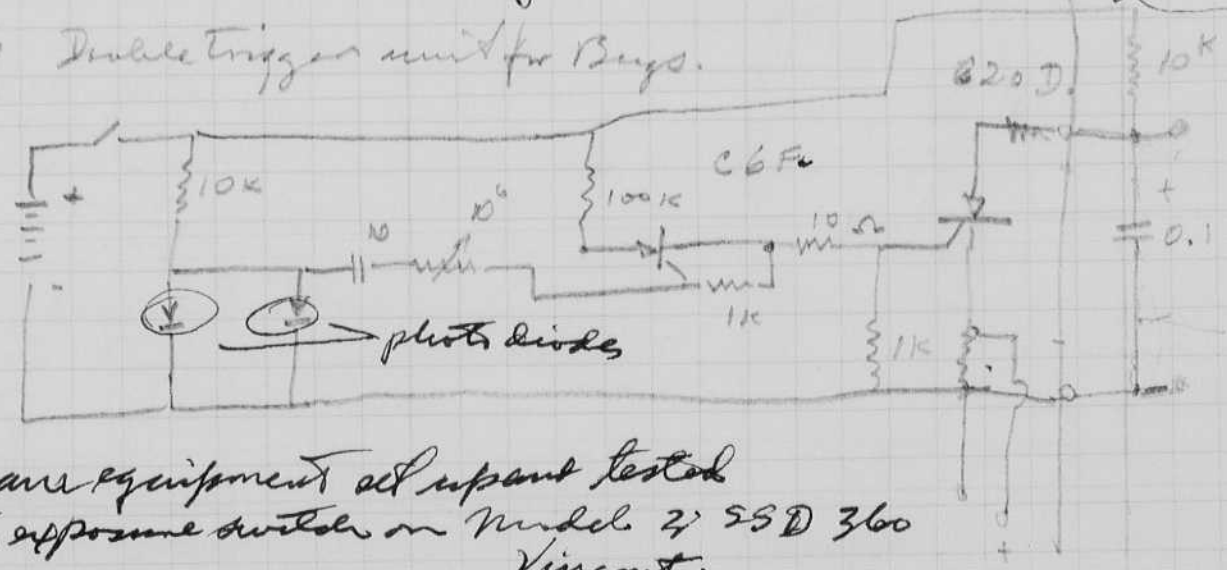 Double Trigger unit for Bugs.
10K
620 D.
10K
C6F
+
10K
10
10⁶
100K
10 Ω
+
0.1
-
1K
photo diodes
1K
equipment set up and tested
exposure switch on Model 2; SSD 360
Vincent.
+